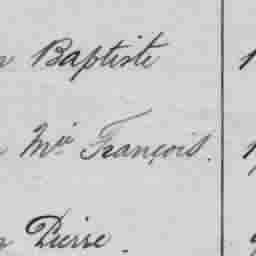 Baptiste
Mie François.
Pierre.